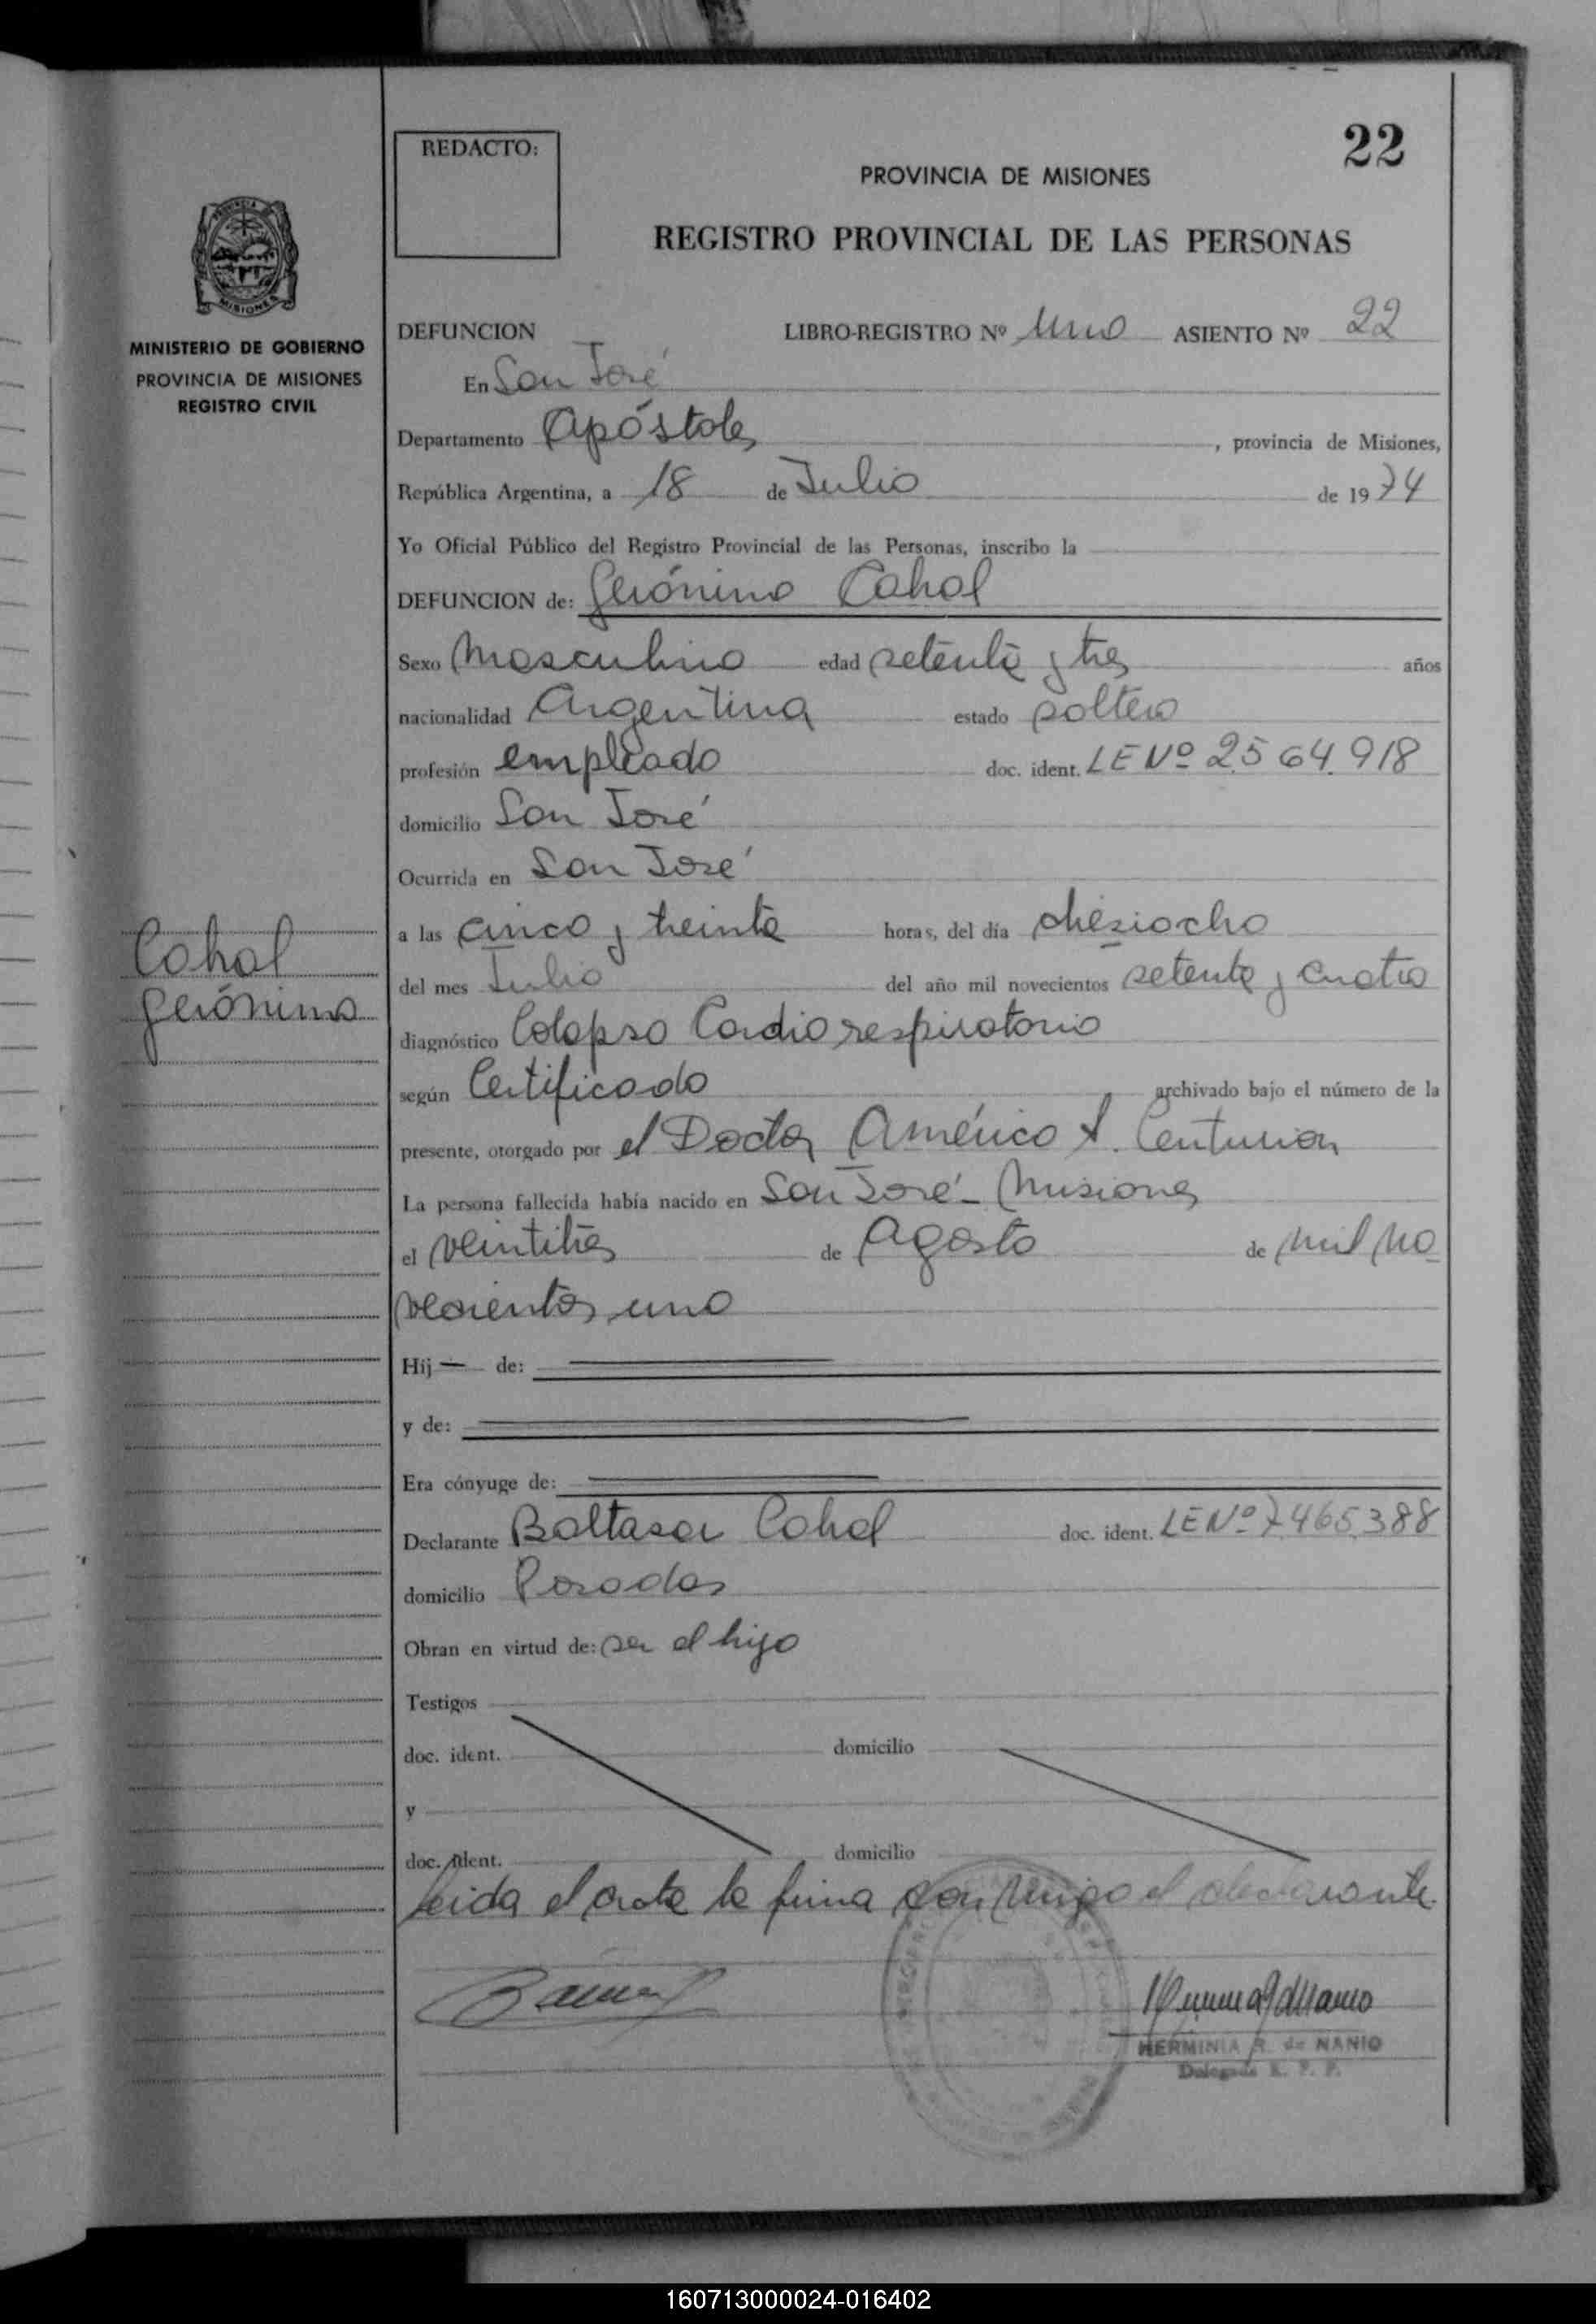 22
REDACTO:
PROVINCIA DE MISIONES
REGISTRO PROVINCIAL DE LAS PERSONAS
MISIONES
MINISTERIO DE GOBIERNO
PROVINCIA DE MISIONES
REGISTRO CIVIL
DEFUNCION LIBRO-REGISTRO Nº Uno ASIENTO Nº 22
En San José
Departamento Apóstoles, provincia de Misiones,
República Argentina, a 18 de Julio de 1974
Yo Oficial Público del Registro Provincial de las Personas, inscribo la
DEFUNCION de: Gerónimo Cahal
Sexo Masculino edad setenta y tres años
nacionalidad Argentina estado soltero
profesión empleado doc. ident. LE Nº 2564.918
domicilio San José
Ocurrida en San José
a las cinco y treinta horas, del día dieziocho
del mes Julio del año mil novecientos setenta y cuatro
Cahal
Gerónimo
diagnóstico Colapso Cardio respiratorio
según Certificado archivado bajo el número de la
presente, otorgado por el Doctor Américo Centurion
La persona fallecida había nacido en San José - Misiones
el veintitres de Agosto de mil no
vecientos uno
Hij — de:
y de:
Era cónyuge de:
Declarante Baltasar Cahal doc. ident. LE Nº 7.465.388
domicilio Posadas
Obran en virtud de: ser el hijo
Testigos
doc. ident. domicilio
y
doc. ident. domicilio
Leida el acta la firma conmigo el declarante.
HERMINIA R. de NANIO
Delegada R. P. P.
160713000024-016402